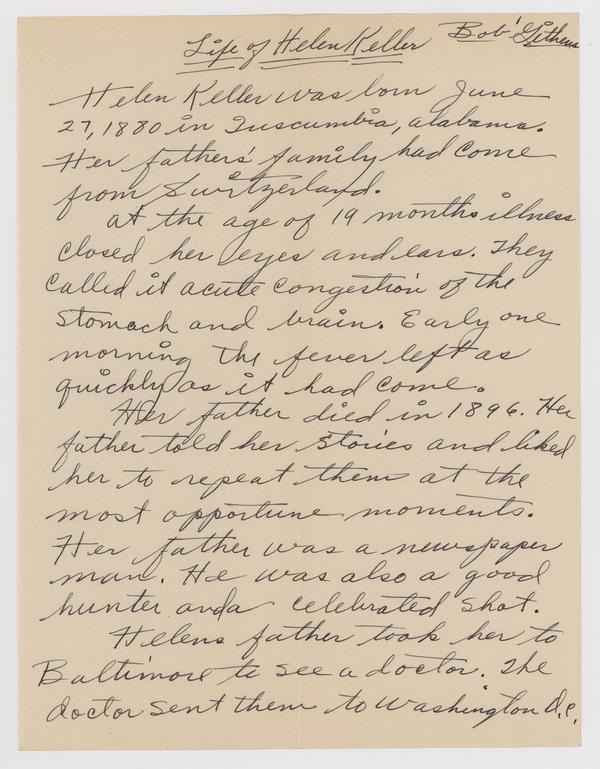 Life of Helen Keller Bob Githens
Helen Keller was born June
27, 1880 in Tuscumbia, alabama.
Her fathers' family had come
from Switzerland.
at the age of 19 months illness
closed her eyes and ears. They
called it acute congestion of the
stomach and brain. Early one
morning the fever left as
quickly as it had come.
Her father died in 1896. Her
father told her stories and liked
her to repeat them at the
most opportune moments.
Her father was a newspaper
man. He was also a good
hunter and a celebrated shot.
Helens father took her to
Baltimore to see a doctor. The
doctor sent them to Washington D.C.